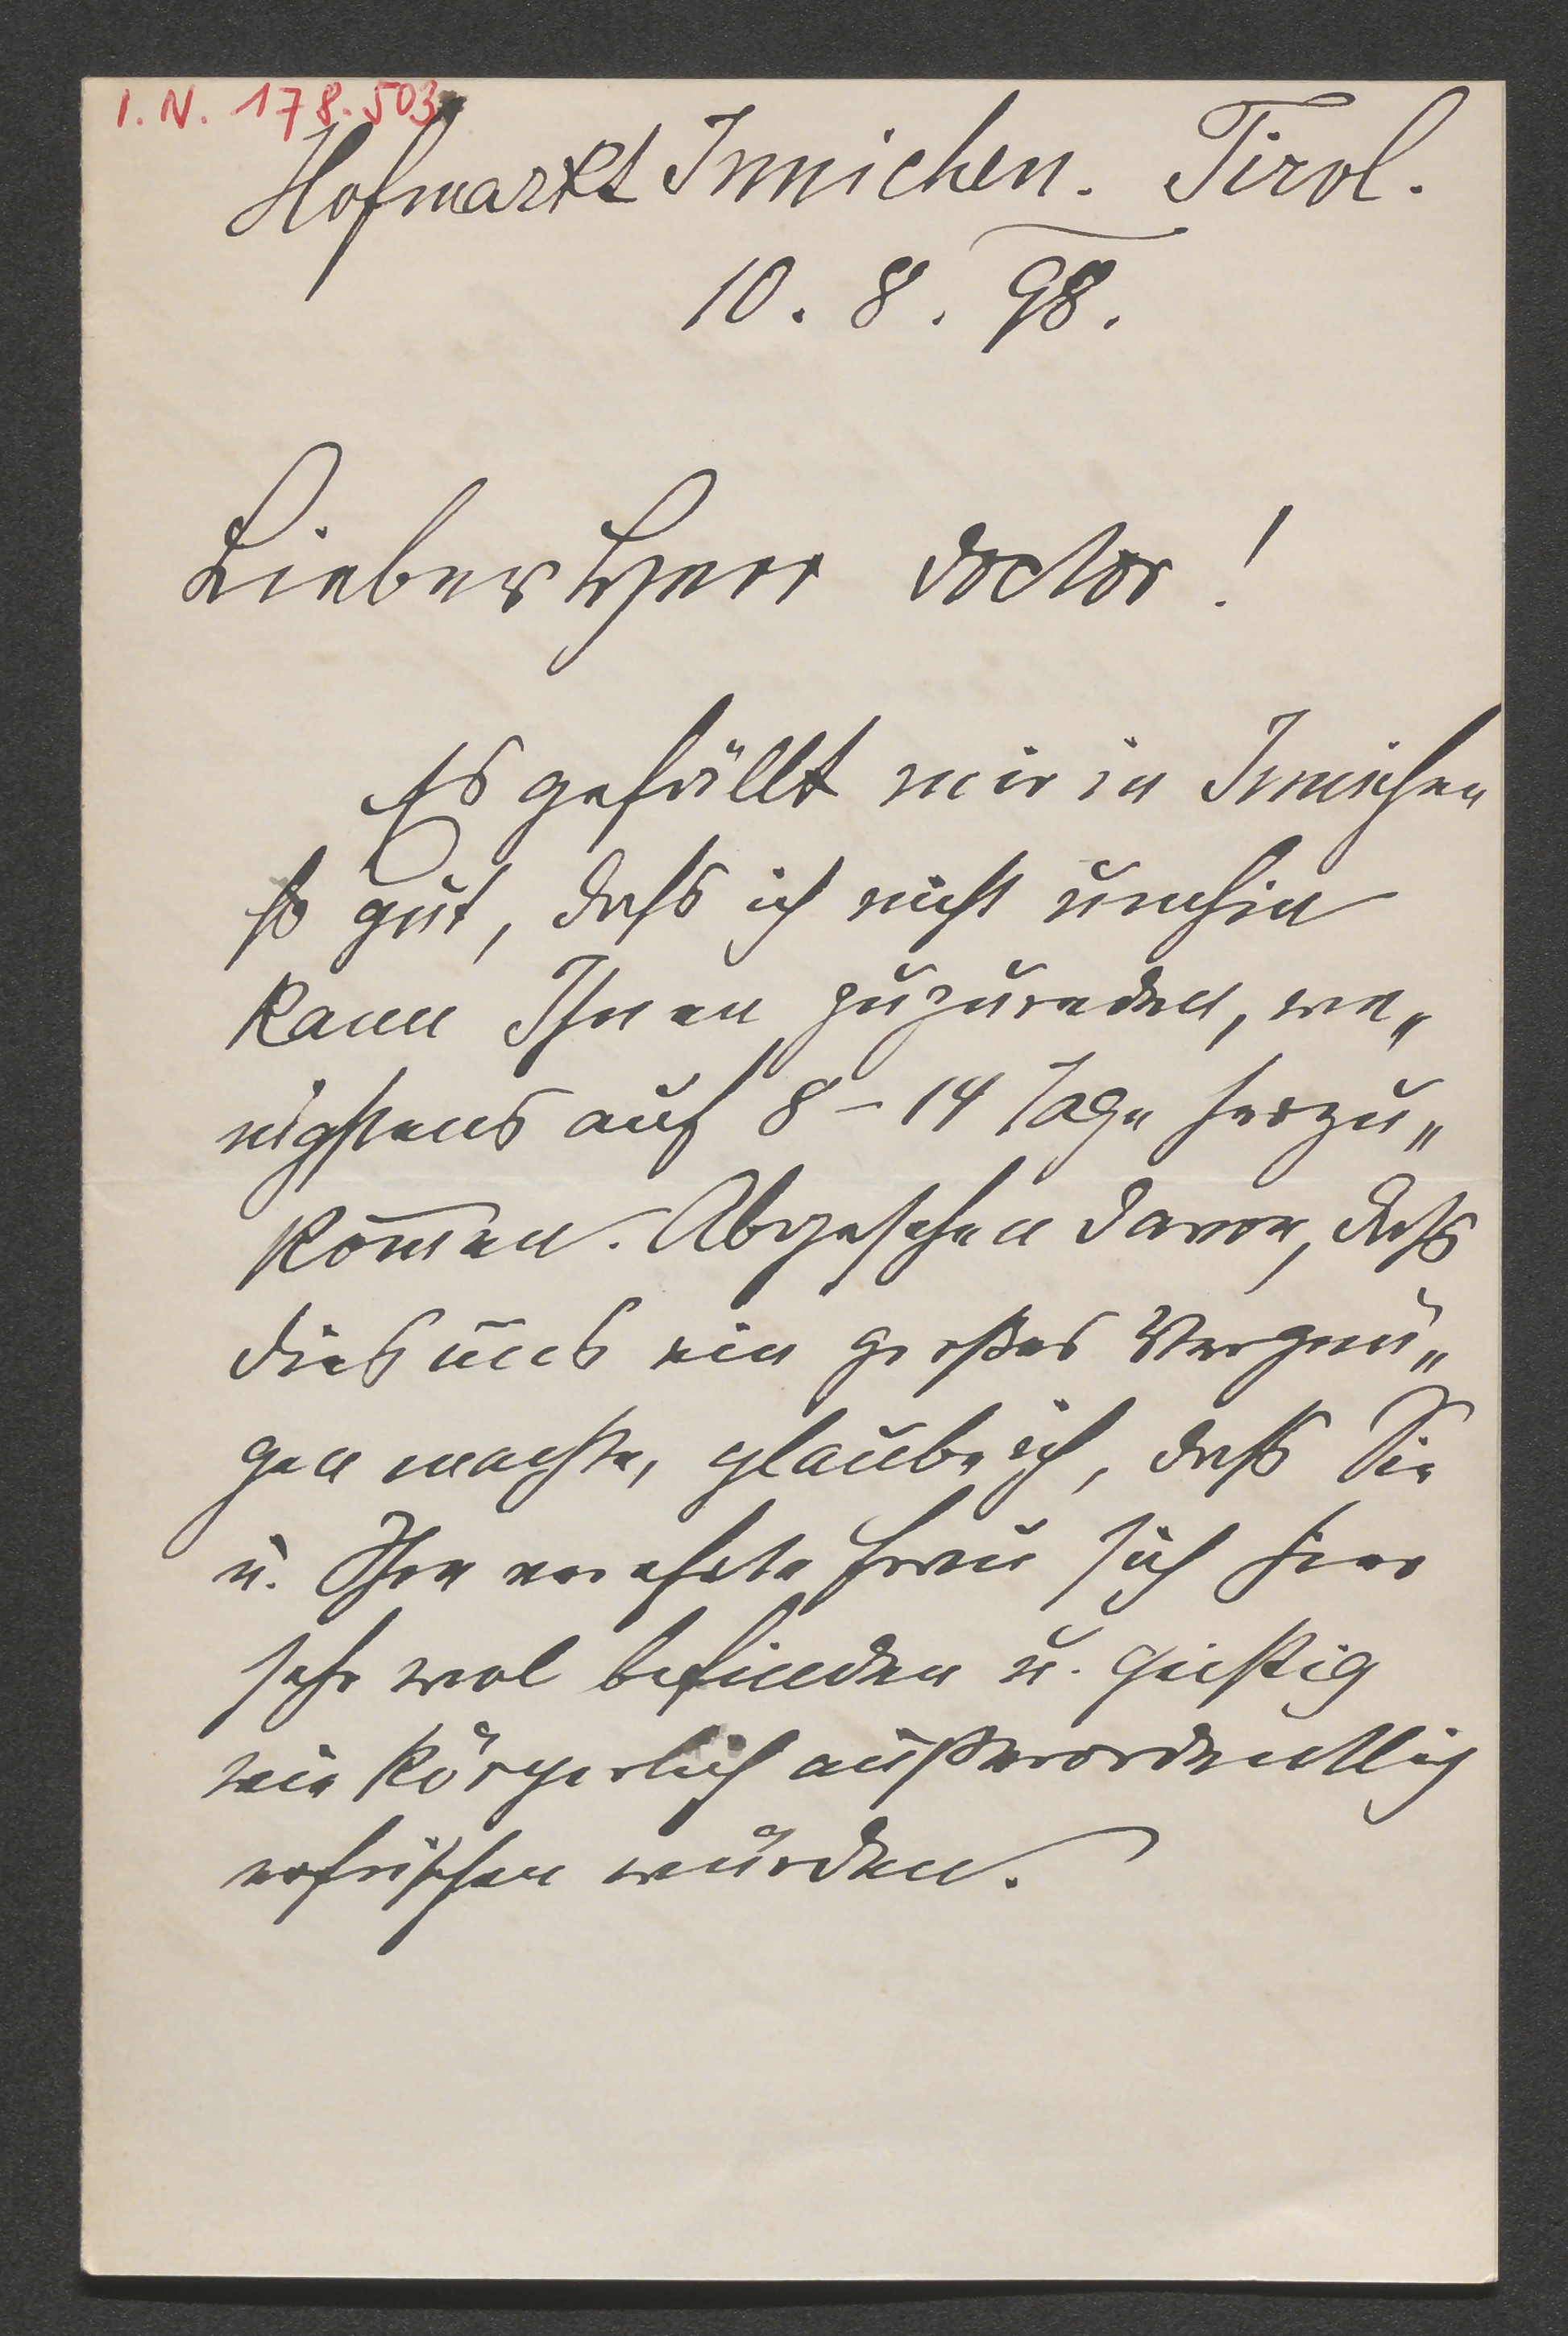 I. N. 178.503
Hofmarkt Innichen. Tirol.
10. 8. 98.
Lieber Herr Doctor!
Es gefällt mir in Innichen
so gut, dass ich nicht umhin
kann Ihnen zuzureden, we„
nigstens auf 8 – 14 Tage herzu„
kom̅en. Abgesehen davon, dass
dies uns ein großes Vergnü„
gen machte, glaube ich, dass Sie
u. Ihre verehrte Frau sich hier
sehr wol befinden u. geistig
wie körperlich außerordentlich
erfrischen würden.